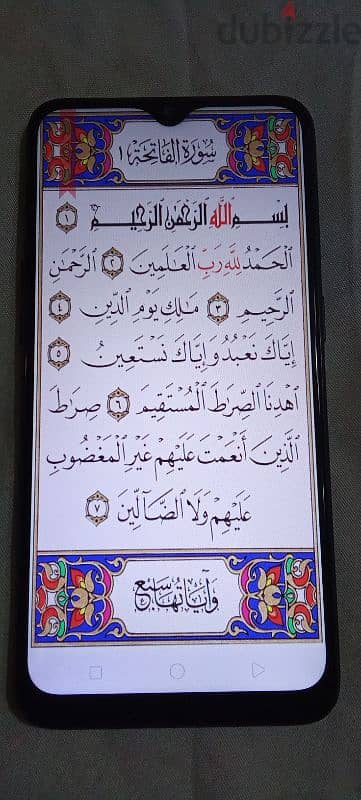 dubizzle
سُورَةُ الفَاتِحَةِ ١
بِسْمِ اللَّهِ الرَّحْمَٰنِ الرَّحِيمِ ١
الْحَمْدُ لِلَّهِ رَبِّ الْعَالَمِينَ ٢ الرَّحْمَٰنِ
الرَّحِيمِ ٣ مَالِكِ يَوْمِ الدِّينِ ٤
إِيَّاكَ نَعْبُدُ وَإِيَّاكَ نَسْتَعِينُ ٥
اهْدِنَا الصِّرَاطَ الْمُسْتَقِيمَ ٦ صِرَاطَ
الَّذِينَ أَنْعَمْتَ عَلَيْهِمْ غَيْرِ الْمَغْضُوبِ
عَلَيْهِمْ وَلَا الضَّالِّينَ ٧
وَآيَاتُهَا سَبْعٌ